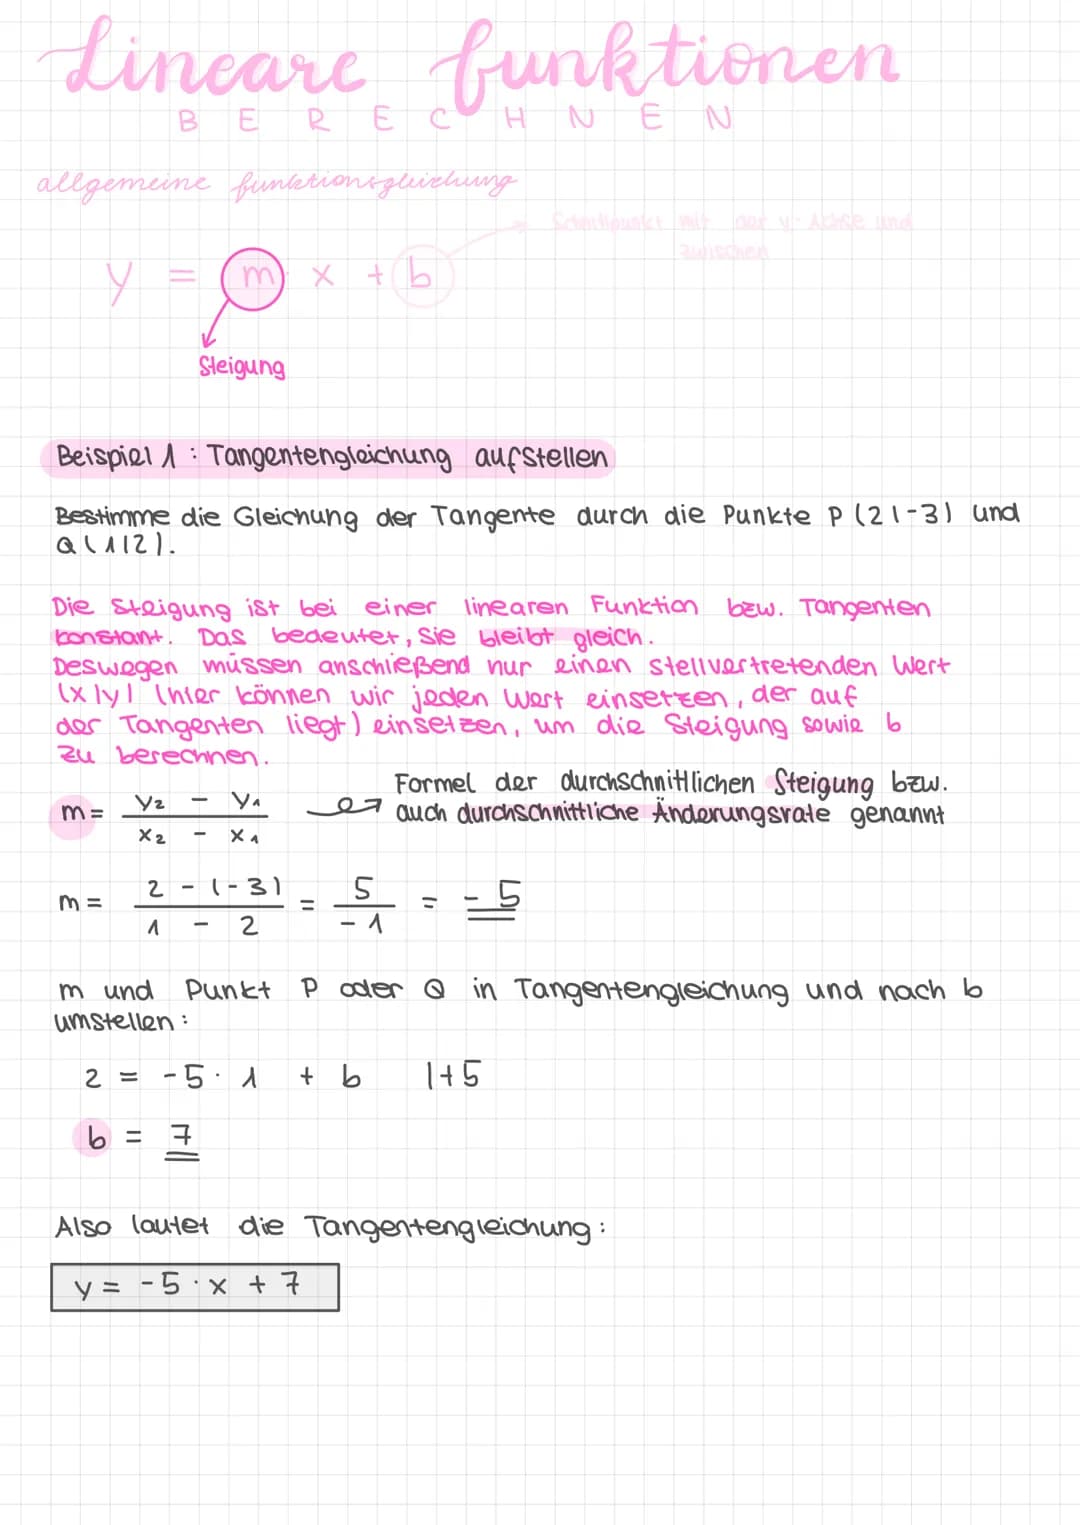 Lineare funktionen
BERECHNEN
allgemeine funktionsgleichung
Schnittpunkt mit der y-Achse und
zwischen
y = m x + b
Steigung
Beispiel 1 : Tangentengleichung aufstellen
Bestimme die Gleichung der Tangente durch die Punkte P (2|-3) und
Q (1|2).
Die Steigung ist bei einer linearen Funktion bzw. Tangenten
konstant. Das bedeutet, sie bleibt gleich.
Deswegen müssen anschießend nur einen stellvertretenden Wert
(x|y) (hier können wir jeden Wert einsetzen, der auf
der Tangenten liegt) einsetzen, um die Steigung sowie b
zu berechnen.
Formel der durchschnittlichen Steigung bzw.
auch durchschnittliche Änderungsrate genannt
m = (y₂ - y₁) / (x₂ - x₁)
m = (2 - (-3)) / (1 - 2) = 5 / -1 = -5
m und Punkt P oder Q in Tangentengleichung und nach b
umstellen :
2 = -5 · 1 + b |+5
b = 7
Also lautet die Tangentengleichung :
y = -5 · x + 7